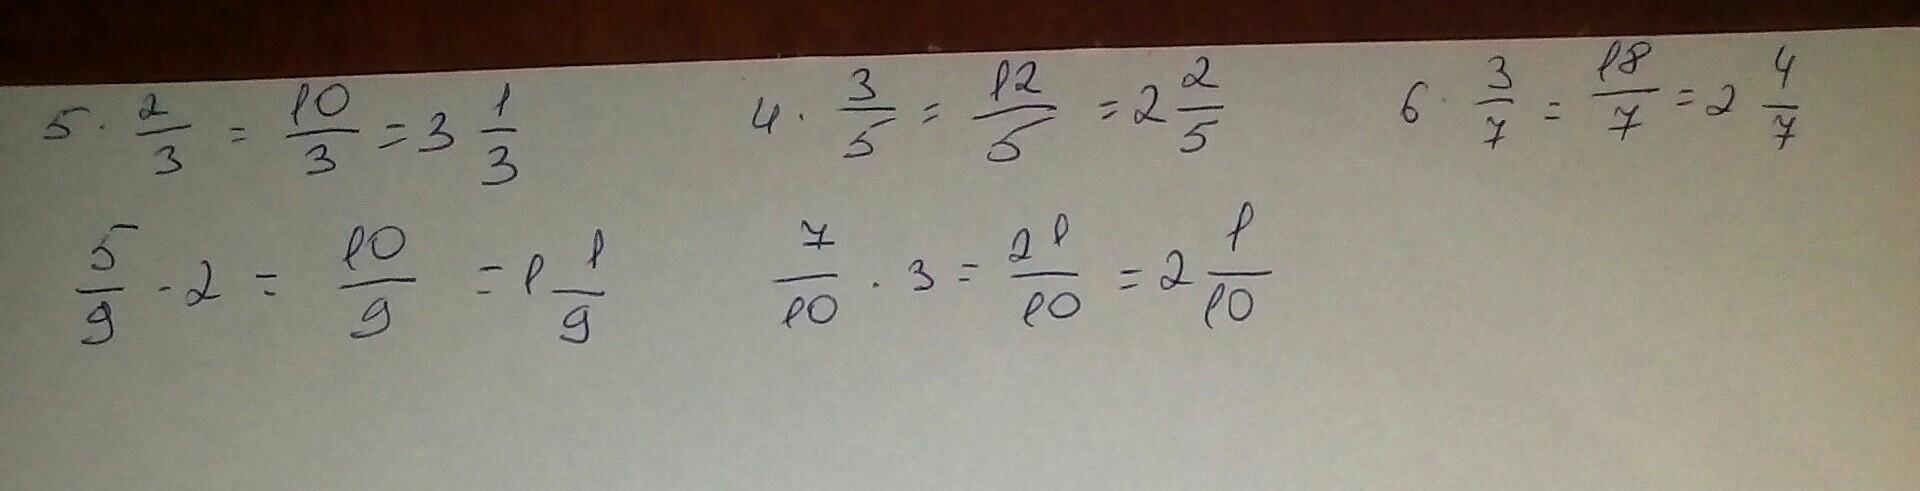 5 · 2/3 = 10/3 = 3 1/3 4 · 3/5 = 12/5 = 2 2/5 6 · 3/7 = 18/7 = 2 4/7
5/9 · 2 = 10/9 = 1 1/9 7/10 · 3 = 21/10 = 2 1/10